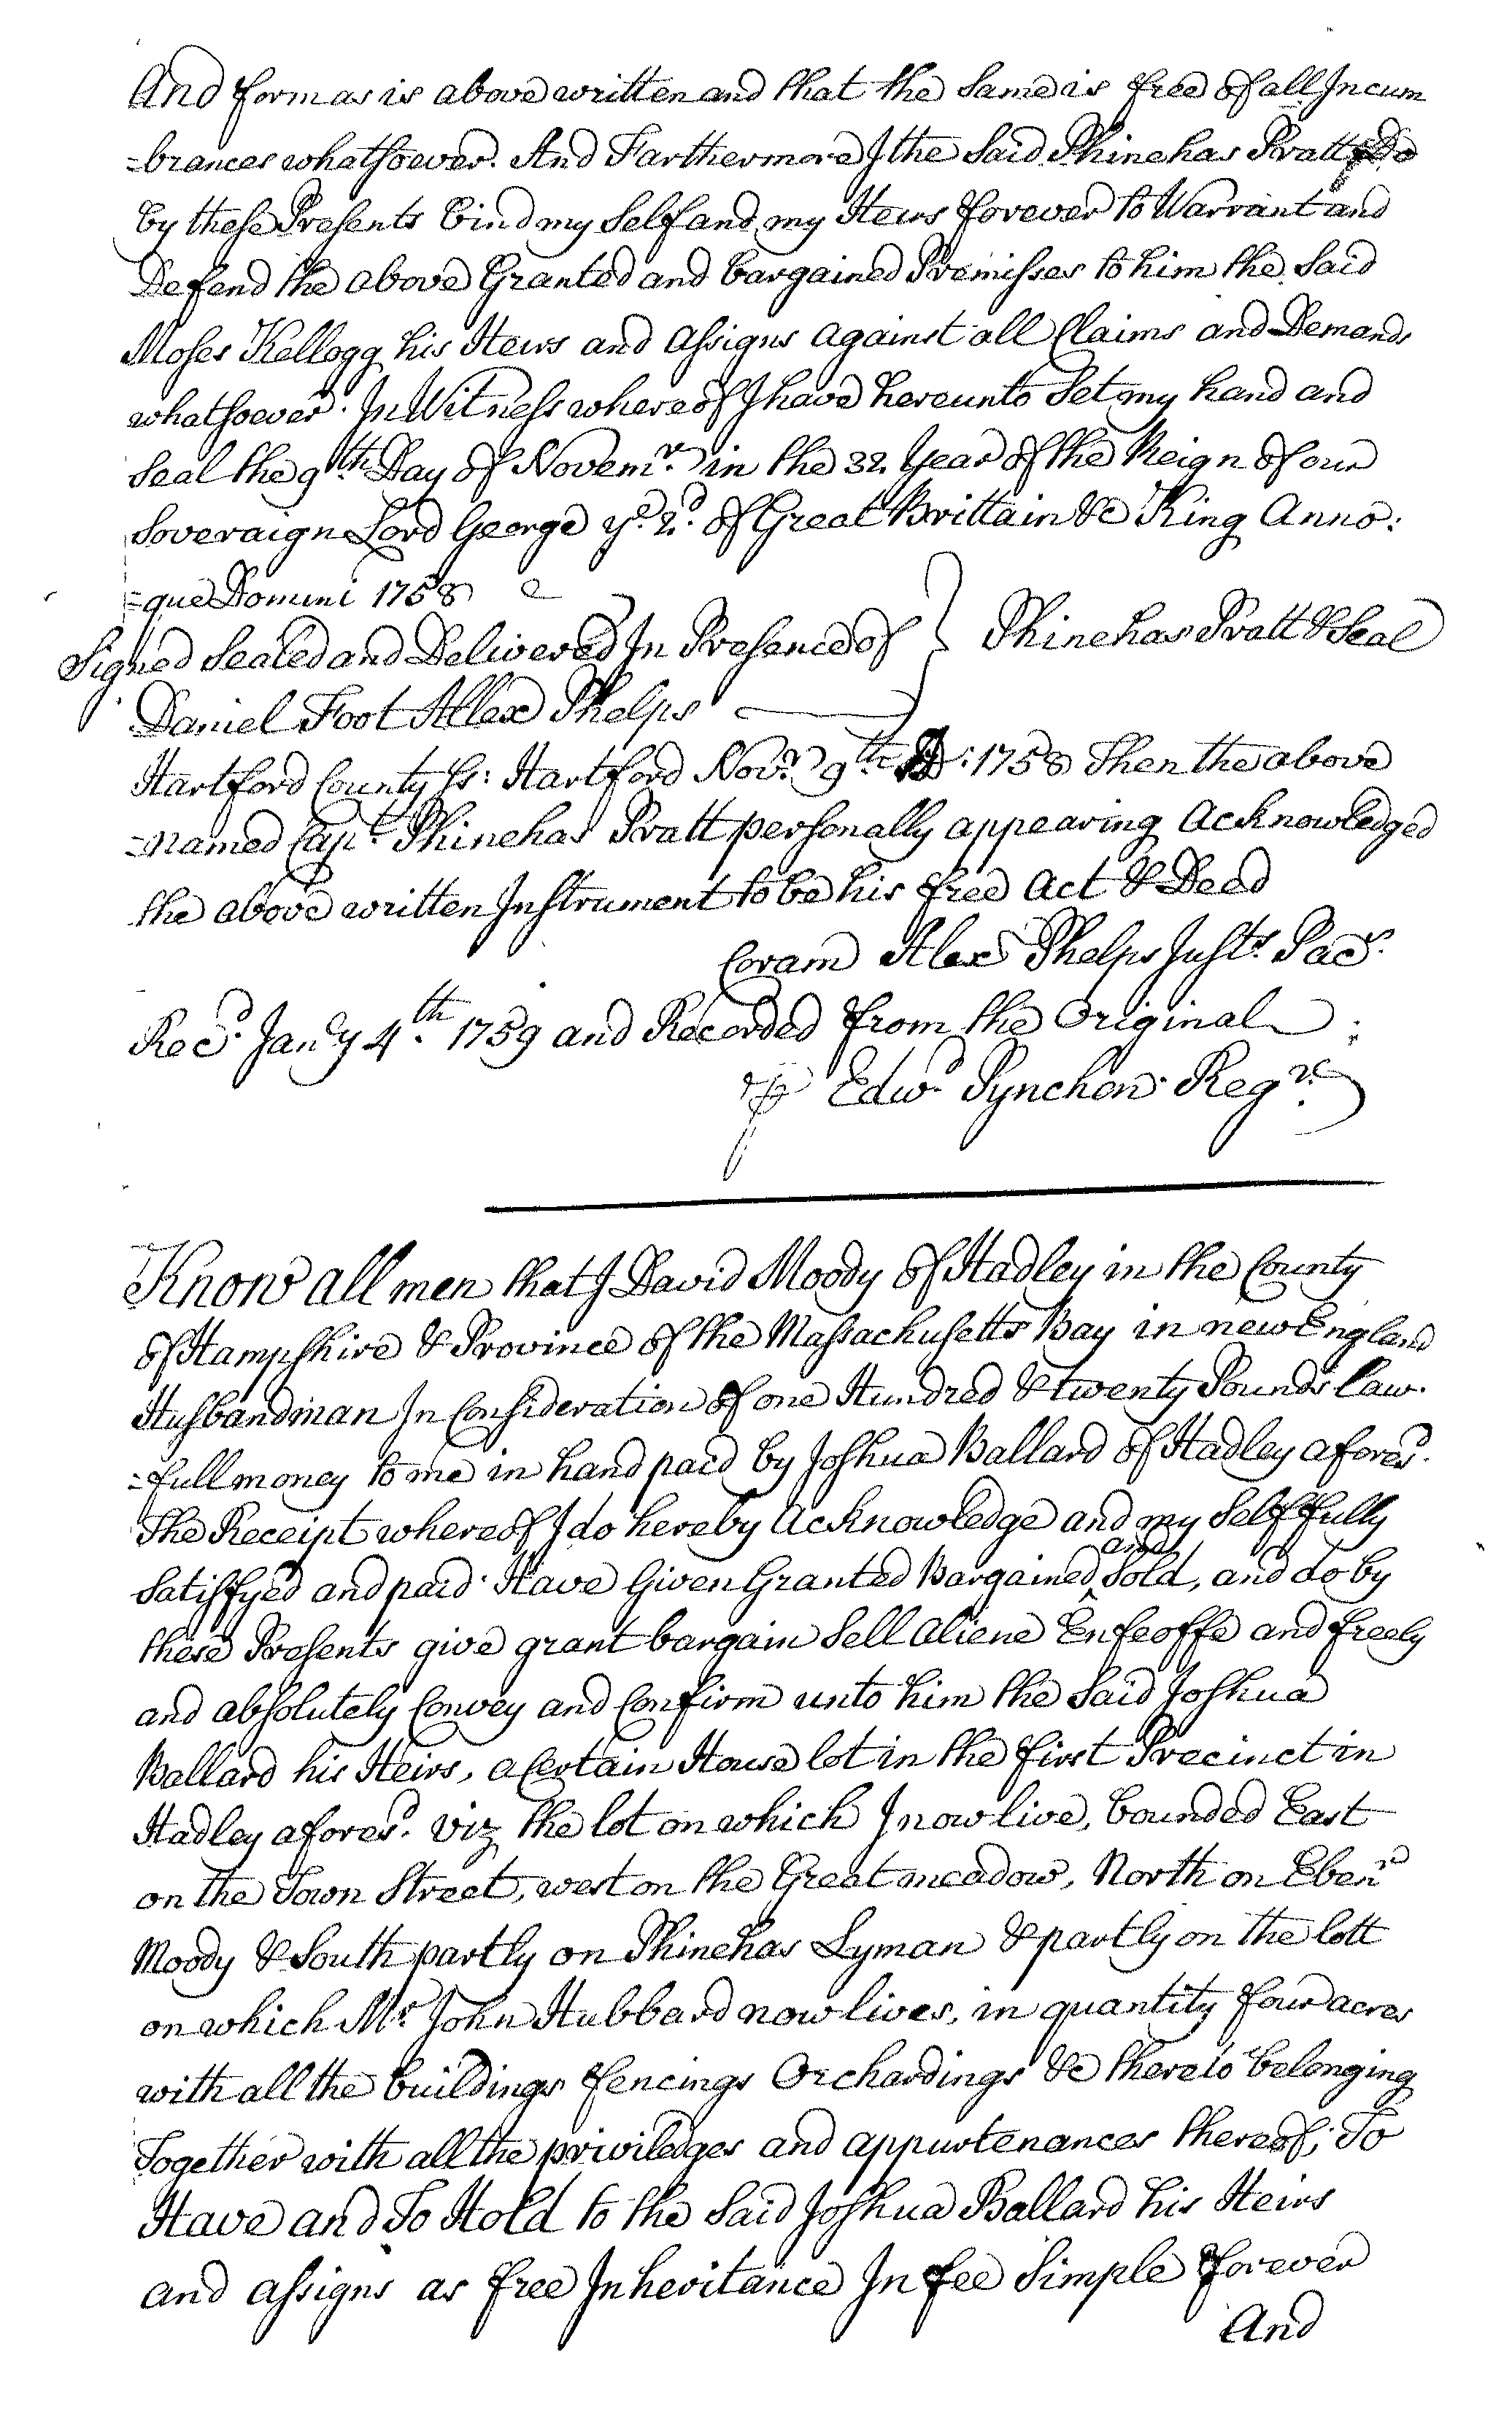 And form as is above written and that the Same is free of all Incum
=brances whatsoever. And Farthermore I the Said Phinehas Pratt Do
by these Presents bind my Self and my Heirs forever to Warrant and
Defend the above Granted and bargained Premisses to him the Said
Moses Kellogg his Heirs and Assigns against all Claims and Demands
whatsoever. In Witness whereof I have hereunto Set my hand and
Seal the 9th Day of Novemr. in the 32. Year of the Reign of our
Soveraign Lord George ye. 2d. of Great Brittain &c King Anno:
=que Domini 1758
Signed Sealed and Delivered In Presence of } Phinehas Pratt & Seal
Daniel Foot Allex Phelps
Hartford County Ss: Hartford Novr. 9th AD: 1758 Then the above
=named Capt. Phinehas Pratt personally appearing Acknowledged
the above written Instrument to be his free Act & Deed
Coram Alex Phelps Justs. Pacs.
Recd. Jany 4th. 1759 and Recorded from the Original
℔ Edwd. Pynchon Regr.
Know all men that I David Moody of Hadley in the County
of Hampshire & Province of the Massachusetts Bay in new England
Husbandman In Consideration of one Hundred & twenty Pounds Law.
=full money to me in hand paid by Joshua Ballard of Hadley aforesd.
The Receipt whereof I do hereby Acknowledge and my Self fully
Satisfyed and paid. Have Given Granted Bargained and Sold, and do by
these Presents give grant bargain Sell aliene Enfeoffe and freely
and absolutely Convey and Confirm unto him the Said Joshua
Ballard his Heirs, a Certain House lot in the first Precinct in
Hadley aforesd. viz the lot on which I now live, bounded East
on the Town Street, west on the Great meadow, North on Ebenr
Moody & South partly on Phinehas Lyman & partly on the lott
on which Mr. John Hubbard now lives, in quantity four acres
with all the buildings fencings Orchardings &c thereto belonging
Together with all the priviledges and appurtenances thereof; To
Have and To Hold to the Said Joshua Ballard his Heirs
and assigns as free Inheritance In fee Simple forever
And